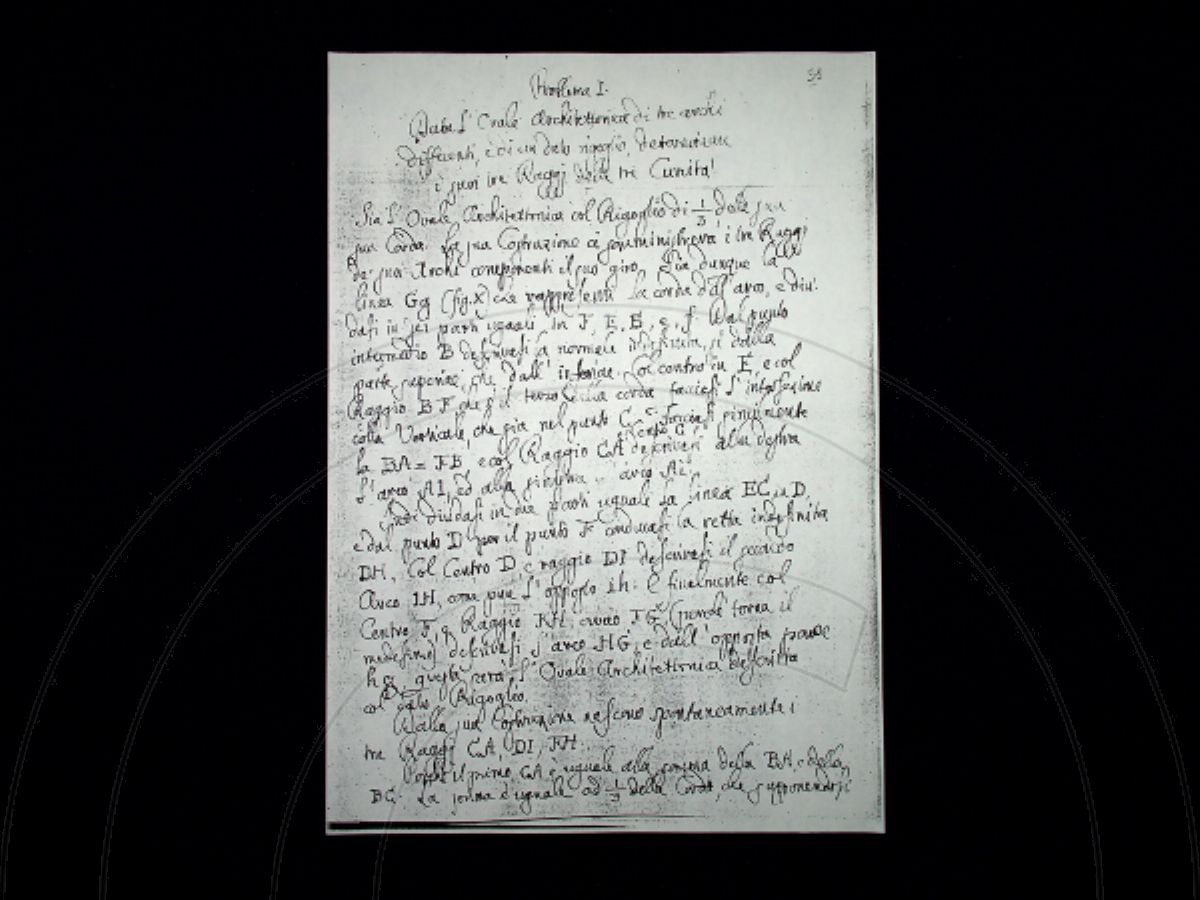 58
Problema I.
Data l'Ovale Architettonica di tre archi
differenti, e di un dato rigoglio, determinare
i suoi tre Raggi delle tre Curvità
Sia l'Ovale Architettonica col Rigoglio di 1/3 della sua
sua Corda. La sua Costruzione ci somministrerà i tre Raggi
de' suoi Archi componenti il suo giro. Sia dunque la
linea Gg (fig. X) che rappresenti la corda dell'arco, e divi-
dasi in sei parti uguali in F, E, B, e, f. Dal punto
intermedio B descrivasi la normale indefinita, sì dalla
parte superiore, che dall'inferiore. Col centro in E, e col
Raggio BF che è il terzo della corda facciasi l'intersezione
colla Verticale, che sia nel punto C. facciasi pingimente
la BA = FB e col Raggio CA descrivasi alla destra
centro C
l'arco AI, ed alla sinistra l'arco Ai.
Indi dividasi in due parti uguale la linea EC in D,
e dal punto D per il punto F conducasi la retta indefinita
DH. Col Centro D e raggio DI descrivasi il secondo
Arco IH, come pure l'opposto ih: E finalmente col
Centro F, e Raggio FH, ovvero FG (perché torna il
medesimo) descrivasi l'arco HG, e dall'opposta parte
hg questa sarà l'Ovale Architettonica descritta
col dato Rigoglio.
Dalla sua Costruzione nascono spontaneamente i
tre Raggi CA, DI, FH.
il primo CA è uguale alla somma della BA, e della
BC. La prima è uguale ad 1/3 della Corda, che supponendosi